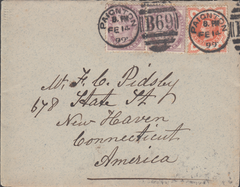 PAIGNTON
FE 14
B69
PAIGNTON
FE 14
Mr. F. C. Pidsby
678 State St.
New Haven
Connecticut
America